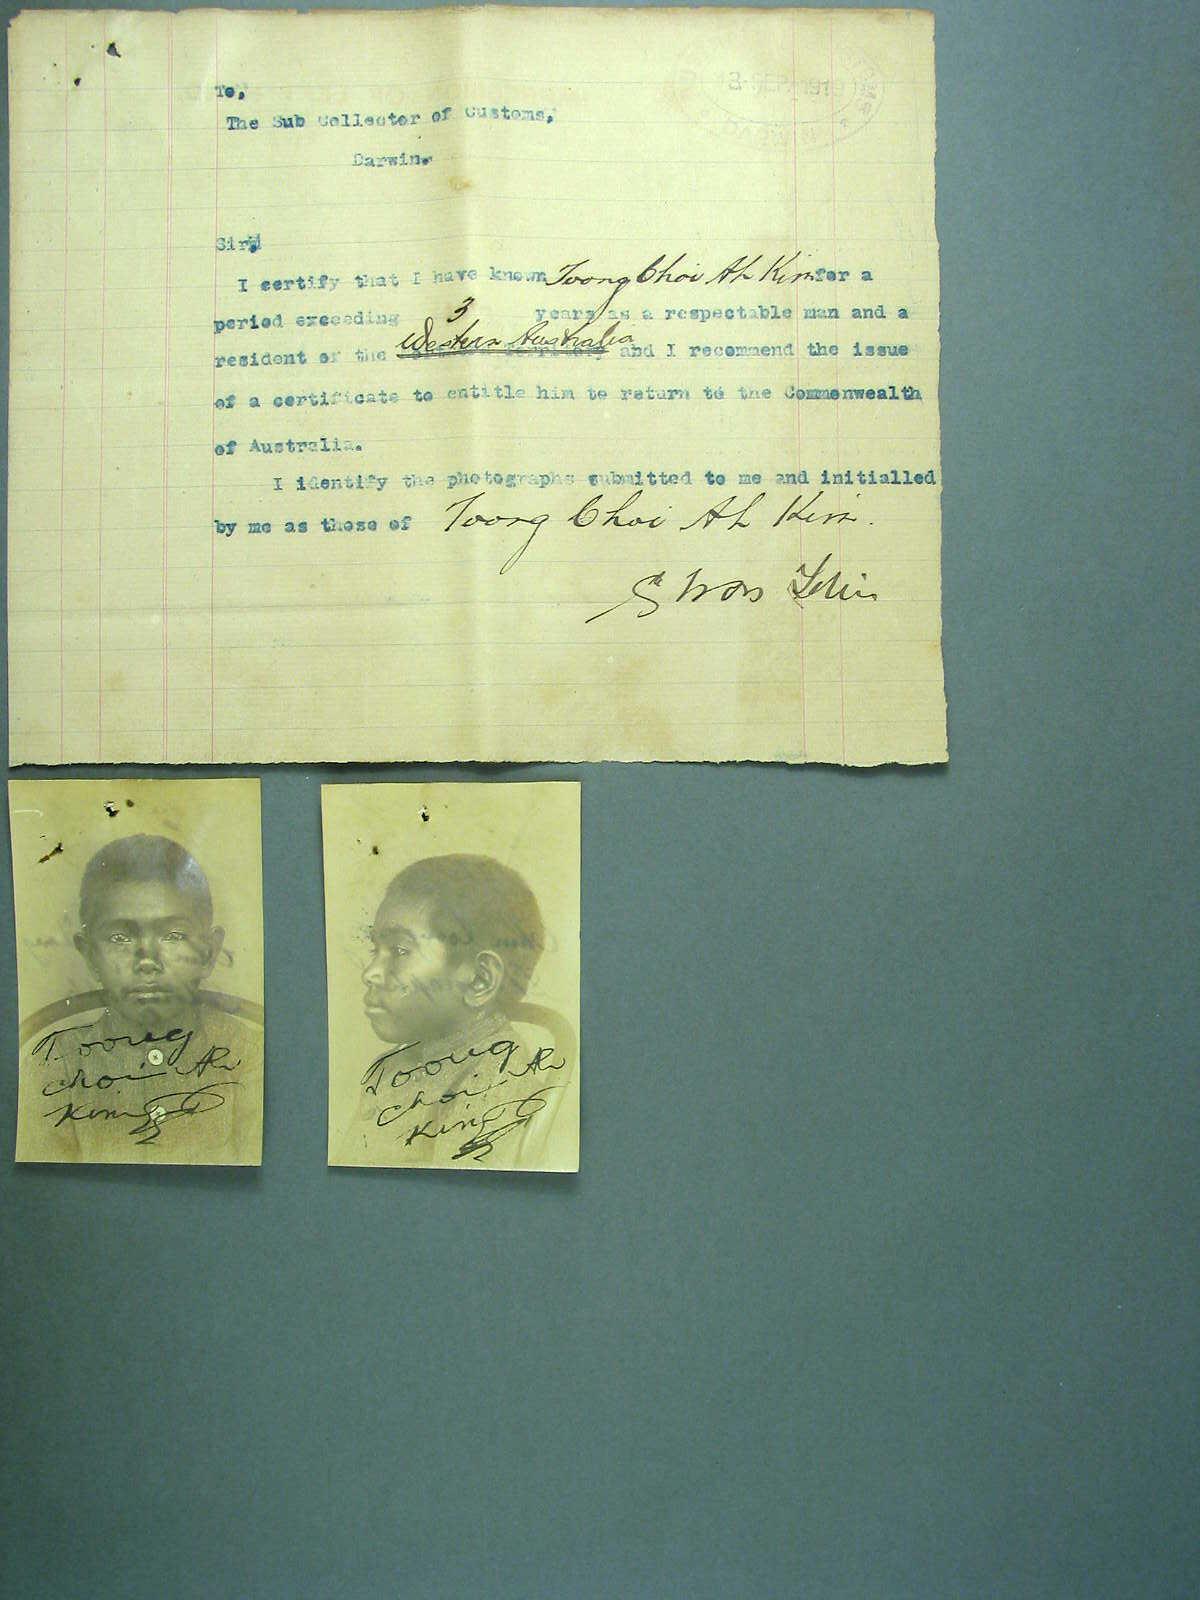 To,
The Sub Collector of Customs,
Darwin.
Sir,
I certify that I have known Toong Choi Ah Kim for a
period exceeding 3 years as a respectable man and a
resident of the Western Australia and I recommend the issue
of a certificate to entitle him to return to the Commonwealth
of Australia.
I identify the photographs submitted to me and initialled
by me as those of Toong Choi Ah Kim.
Toong
Choi Ah
Kim
Toong
Choi Ah
Kim